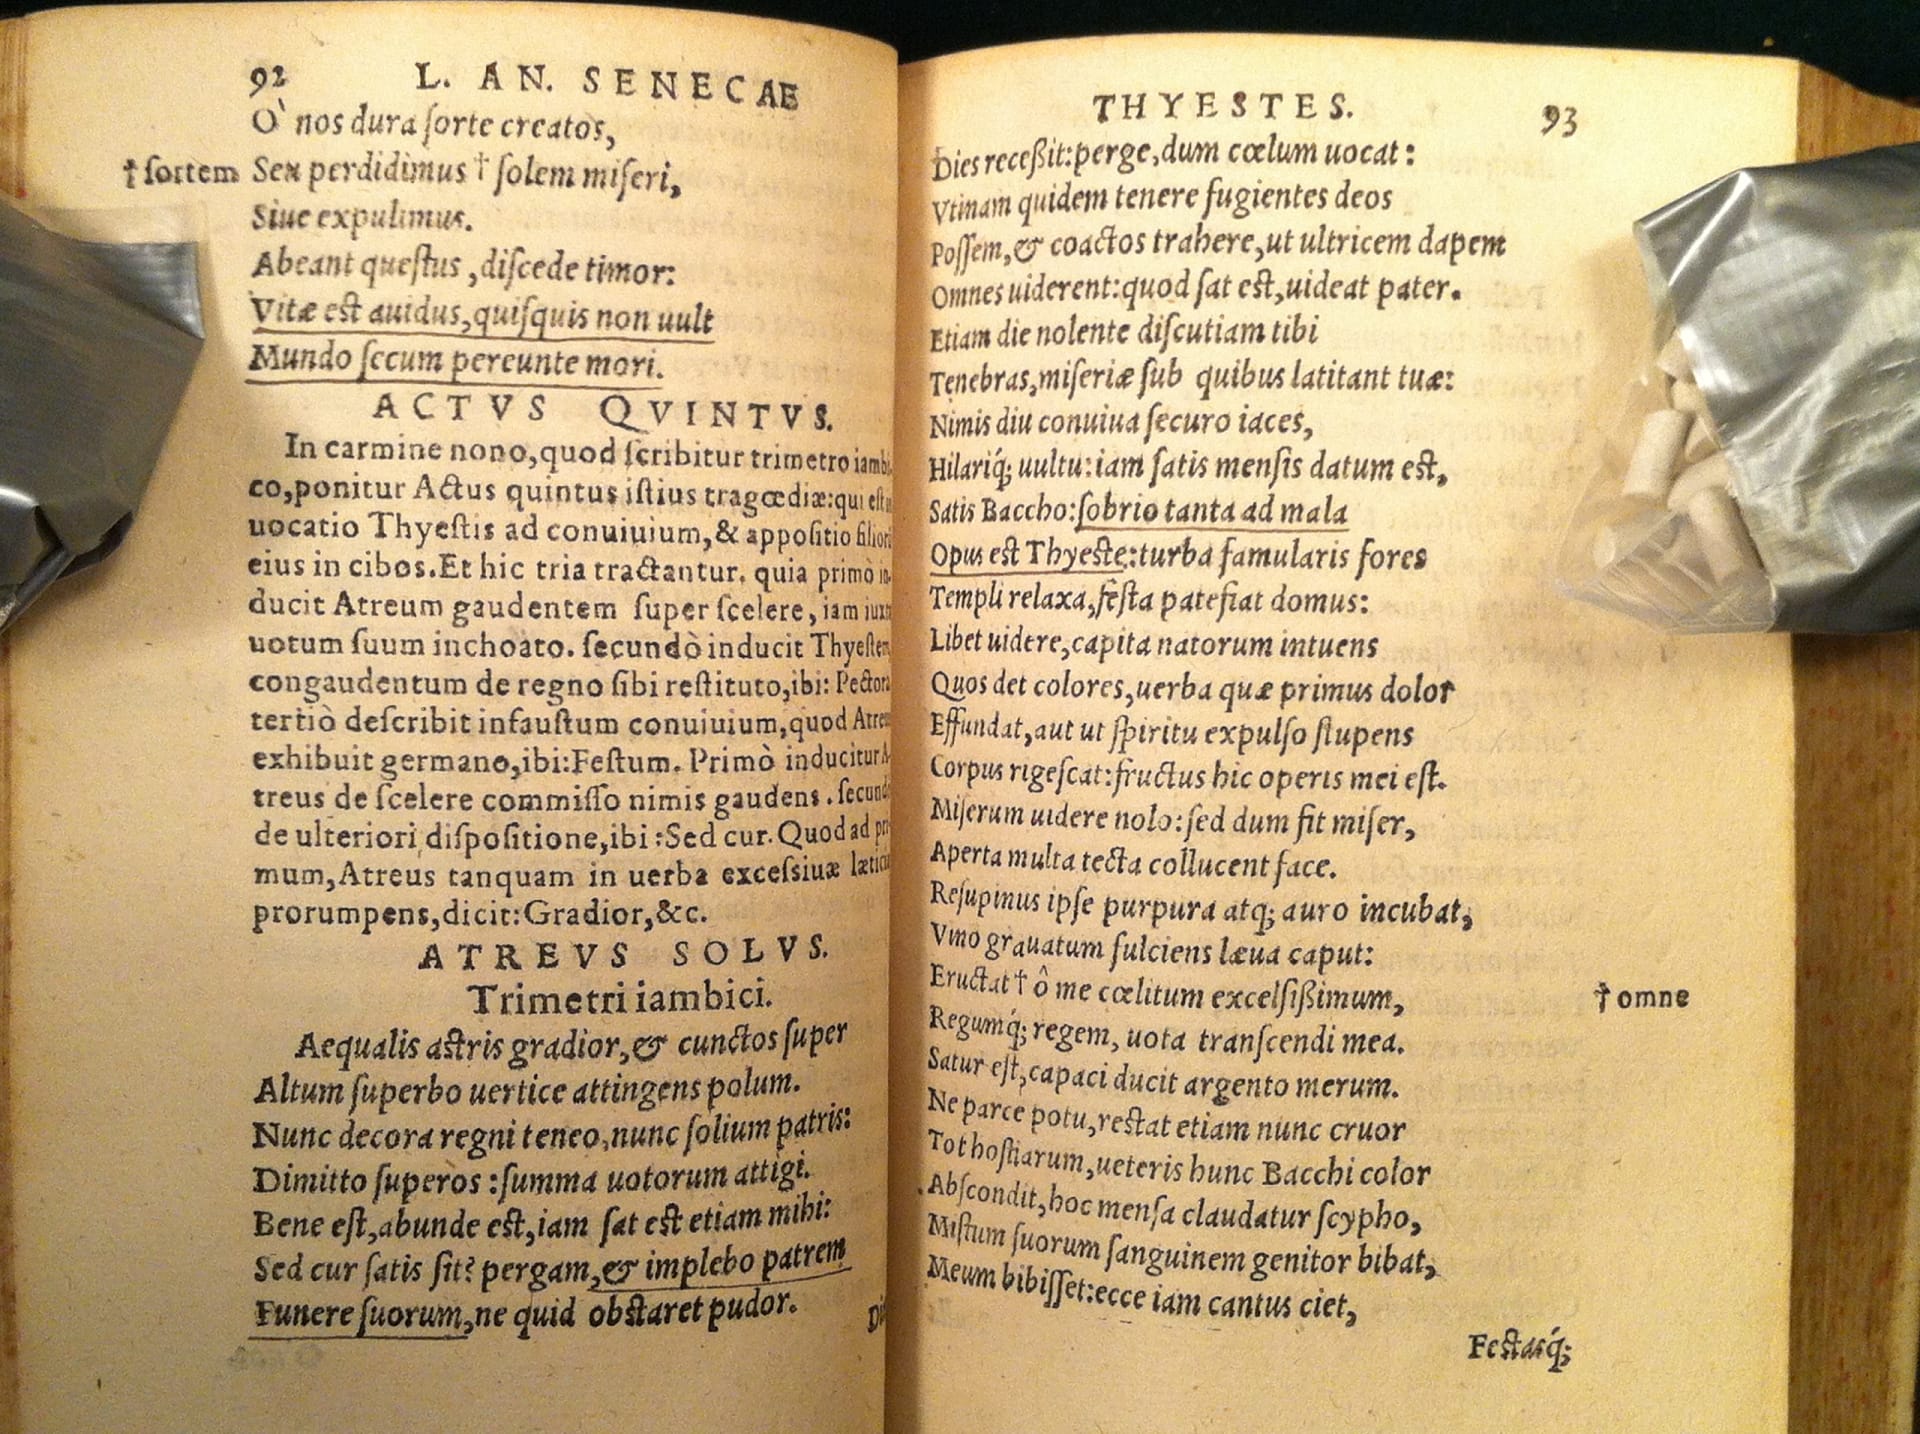 92 L. AN. SENECAE
O` nos dura ſorte creatos,
† ſortem Seu perdidimus † ſolem miſeri,
Siue expulimus.
Abeant queſtus, diſcede timor:
Vitæ eſt auidus, quiſquis non uult
Mundo ſecum pereunte mori.
ACTVS QVINTVS.
In carmine nono, quod ſcribitur trimetro iambi
co, ponitur Actus quintus iſtius tragœdiæ: qui eſt
uocatio Thyeſtis ad conuiuium, & appoſitio filiorū
eius in cibos. Et hic tria tractantur. quia primò in-
ducit Atreum gaudentem ſuper ſcelere, iam iuxta
uotum ſuum inchoato. ſecundò inducit Thyeſtem
congaudentum de regno ſibi reſtituto, ibi: Pectora
tertiò deſcribit infauſtum conuiuium, quod Atreus
exhibuit germano, ibi: Feſtum. Primò inducitur A-
treus de ſcelere commiſſo nimis gaudens. ſecundò
de ulteriori diſpoſitione, ibi: Sed cur. Quod ad pri
mum, Atreus tanquam in uerba exceſsiuæ læticiæ
prorumpens, dicit: Gradior, &c.
ATREVS SOLVS.
Trimetri iambici.
Aequalis aſtris gradior, & cunctos ſuper
Altum ſuperbo uertice attingens polum.
Nunc decora regni teneo, nunc ſolium patris:
Dimitto ſuperos: ſumma uotorum attigi.
Bene eſt, abunde eſt, iam ſat eſt etiam mihi:
Sed cur ſatis ſit? pergam, & implebo patrem
Funere ſuorum, ne quid obſtaret pudor.
Di
THYESTES. 93
Dies receßit: perge, dum cœlum uocat:
Vtinam quidem tenere fugientes deos
Poſſem, & coactos trahere, ut ultricem dapem
Omnes uiderent: quod ſat eſt, uideat pater.
Etiam die nolente diſcutiam tibi
Tenebras, miſeriæ ſub quibus latitant tuæ:
Nimis diu conuiua ſecuro iaces,
Hilariq́; uultu: iam ſatis menſis datum eſt,
Satis Baccho: ſobrio tanta ad mala
Opus eſt Thyeſte: turba famularis fores
Templi relaxa, feſta patefiat domus:
Libet uidere, capita natorum intuens
Quos det colores, uerba quæ primus dolor
Effundat, aut ut ſpiritu expulſo ſtupens
Corpus rigeſcat: fructus hic operis mei eſt.
Miſerum uidere nolo: ſed dum fit miſer,
Aperta multa tecta collucent face.
Reſupinus ipſe purpura atq; auro incubat,
Vino grauatum fulciens læua caput:
Eructat † ô me cœlitum excelſißimum, † omne
Regumq́; regem, uota tranſcendi mea.
Satur eſt, capaci ducit argento merum.
Ne parce potu, reſtat etiam nunc cruor
Tot hoſtiarum, ueteris hunc Bacchi color
Abſcondit, hoc menſa claudatur ſcypho,
Miſtum ſuorum ſanguinem genitor bibat,
Meum bibiſſet: ecce iam cantus ciet,
Feſtasq́;